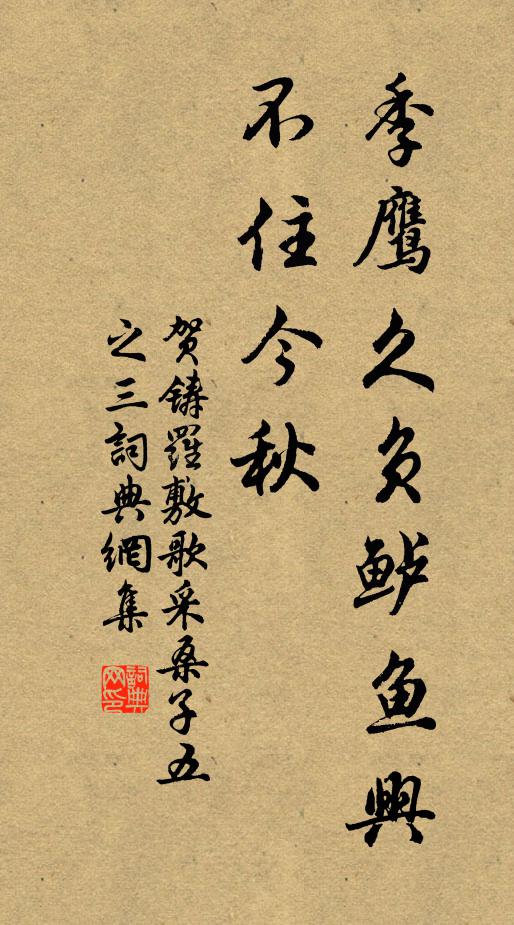 季鹰久负鲈鱼興
不住今秋
贺鑄羅敷歌采桑子五
之三詞典網集
詞典网印